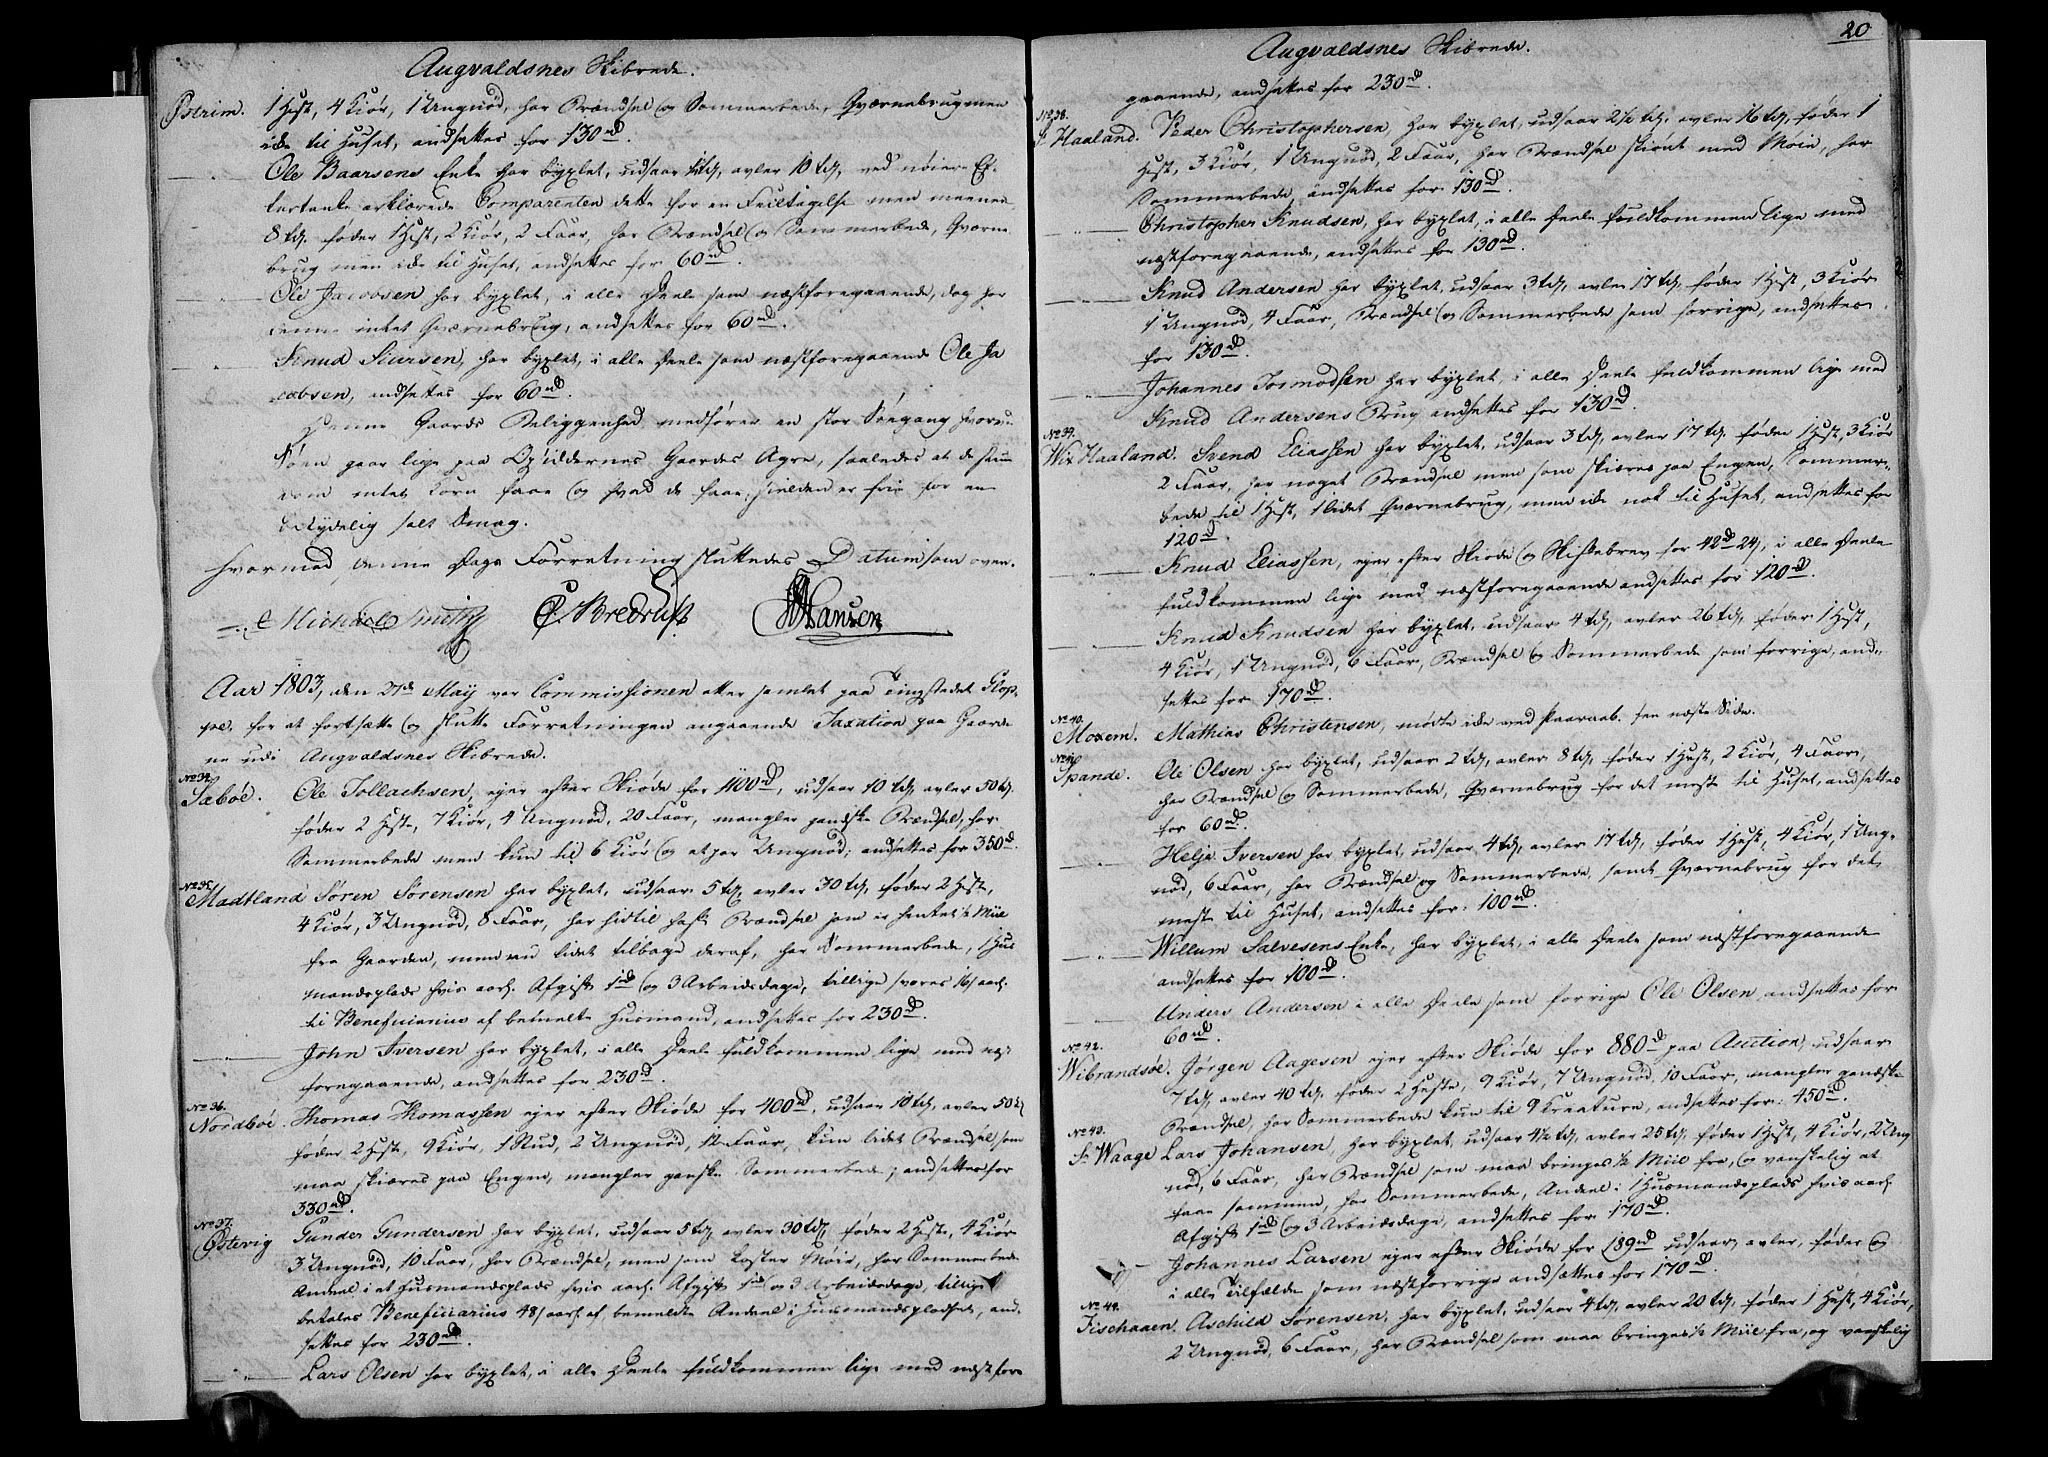 Augvaldsnes Skibrede.
Østrim. 1 Hest, 4 Kiør, 1 Ungnød, har Brændsel og Sommerbede, Qværnebrug men
ikke til Huset, ansættes for 130 rd.
Ole Baarsens Enke har byxlet, udsaar 1 td, avler 10 td, ved nøiere Ef-
tertanke erklærede Comparenten dette for en Feiltagelse men meener
8 td. føder 1 Hest, 2 Kiør, 2 Faar, har Brændsel og Sommerbede, Qværne
brug men ikke til Huset, andsættes for 60 rd.
Ole Jacobsen har byxlet, i alle Deele som næstforegaaende, dog har
denne intet Qværnebrug, andsættes for 60 rd.
Knud Siursen, har byxlet, i alle Deele som næstforegaaende Ole Ja
cobsen, andsættes for 60 rd.
Denne Gaards Beliggenhed medfører en stor Søegang hvorved
Søen gaar lige paa Opsiddernes Gaardes Agre, saaledes at de
intet Korn faar og hvad de faar, sielden er frie for en
betydelig salt Smag.
Hvormed denne Dags Forretning sluttedes Datum som oven.
Michael Smith C. Bredrup Hansen
Aar 1803, den 27de May var Commissionen atter samlet paa Tingstedet Hop-
pe, for at fortsætte og slutte Forretningen angaaende Taxation paa Gaarde
ne udi Augvaldsnes Skibrede.
No 34.
Sæbøe. Ole Tollachsen, ejer efter Skiøde for 1100 rd, udsaar 10 td, avler 50 td.
føder 2 Heste, 7 Kiør, 4 Ungnød, 20 Faar, mangler gandske Brændsel, har
Sommerbede men kun til 6 Kiør og et par Ungnød; andsættes for 350 rd.
No 35.
Madtland Søren Sørensen har byxlet, udsaar 5 td, avler 30 td, føder 2 Heste,
4 Kiør, 3 Ungnød, 8 Faar, har hidtil havt Brændsel som er hentet ½ Miil
fra Gaarden, men nu lidet tilbage deraf, har Sommerbede, 1 Hus
mandsplads hvis aarl. Afgift 1 rd og 3 Arbeidsdage, tillige svares 16 s aarl.
til Beneficiarius af bemelte Husmand, andsættes for 230 rd.
John Iversen har byxlet, i alle Deele fuldkommen lige med næst
foregaaende, andsættes for 230 rd.
No 36.
Nordbøe. Thomas Thomassen ejer efter Skiøde for 400 rd, udsaar 10 td, avler 50 td
føder 2 Heste, 9 Kiør, 1 Stud, 2 Ungnød, 12 Faar, kun lidet Brændsel som
maa skiæres paa Engen, mangler ganske Sommerbede; andsættes for
330 rd.
No 37.
Østevig Gunder Gundersen har byxlet, udsaar 5 td, avler 30 td, føder 2 Heste, 4 Kiør
3 Ungnød, 10 Faar, har Brændsel, men som koster Møie, har Sommerbede
Andeel i et Husmandsplads hvis aarl. Afgift 1 rd og 3 Arbeidsdage, tillige
betales Beneficiarius 48 s aarl. af bemeldte Andeel i Husmandspladset, and-
sættes for 230 rd.
Lars Olsen har byxlet, i alle Deele fuldkommen lige med næstfore
20
Augvaldsnes Skibrede.
gaaende, andsættes for 230 rd.
No 38.
Haaland. Peder Christophersen, har byxlet, udsaar 2½ td, avler 16 td, føder 1
Hest, 3 Kiør, 1 Ungnød, 2 Faar, har Brændsel skiønt med Møie, har
Sommerbede, andsættes for 130 rd.
Christopher Knudsen, har byxlet, i alle Deele fuldkommen lige med
næstforegaaende, andsættes for 130 rd.
Knud Andersen har byxlet, udsaar 3 td, avler 17 td, føder 1 Hest, 3 Kiør
1 Ungnød, 4 Faar, Brændsel og Sommerbede som forrige, andsættes
for 130 rd.
Johannes Tormodsen har byxlet, i alle Deele fuldkommen lige med
Knud Andersens Brug andsættes for 130 rd.
No 39.
Wix Haaland. Svend Eliassen har byxlet, udsaar 3 td, avler 17 td, føder 1 Hest, 3 Kiør
2 Faar, har noget Brændsel men som skiæres paa Engen, Sommer-
bede til 1 Hest, 1 lidet Qværnebrug, men ikke nok til Huset, andsættes for
120 rd.
Knud Eliassen, ejer efter Skiøde og Skiftebrev for 42 rd 24 s, i alle Deele
fuldkommen lige med næstforegaaende andsættes for 120 rd.
Knud Knudsen har byxlet, udsaar 4 td, avler 26 td, føder 1 Hest,
4 Kiør, 1 Ungnød, 6 Faar, Brændsel og Sommerbede som forrige, and-
sættes for 170 rd.
No 40.
Moxem. Mathias Christensen, mødte ikke ved Paaraab. see næste Side.
No 41.
Spande. Ole Olsen har byxlet, udsaar 2 td, avler 8 td, føder 1 Hest, 2 Kiør, 4 Faar,
har Brændsel og Sommerbede, Qværnebrug for det meste til Huset, andsættes
for 60 rd.
Helje Iversen har byxlet, udsaar 4 td, avler 17 td, føder 1 Hest, 4 Kiør, 1 Ung-
nød, 6 Faar, har Brændsel og Sommerbede, samt Qværnebrug for det
meste til Huset, andsættes for 100 rd.
Willum Salvesens Enke, har byxlet, i alle Deele som næstforegaaende
andsættes for 100 rd.
Anders Andersen i alle Deele som forrige Ole Olsen, andsættes for
60 rd.
No 42.
Wibrandsøe. Jørgen Aagesen ejer efter Skiøde for 880 rd paa Auction, udsaar
7 td, avler 40 td, føder 2 Heste, 9 Kiør, 7 Ungnød, 10 Faar, mangler gandske
Brændsel, har Sommerbede kun til 9 Kreature, andsættes for 450 rd.
No 43.
Waage Lars Johansen, har byxlet, udsaar 4½ td, avler 25 td, føder 1 Hest, 4 Kiør, 2 Ung
nød, 6 Faar, har Brændsel som maa bringes ½ Miil fra, og vanskelig at
faae sammen, har Sommerbede, Andeel i 1 Husmandsplads hvis aarl.
Afgift 1 rd og 3 Arbeidsdage, andsættes for 170 rd.
Johannes Larsen ejer efter Skiøde for 189 rd udsaar, avler, føder og
i alle Tilfælde som næstforrige andsættes for 170 rd.
No 44.
Fischaaen. Aschild Sørensen, har byxlet, udsaar 4 td, avler 20 td, føder 1 Hest, 4 Kiør,
2 Ungnød, 6 Faar, har Brændsel som maa bringes ½ Miil fra, og vanskelig